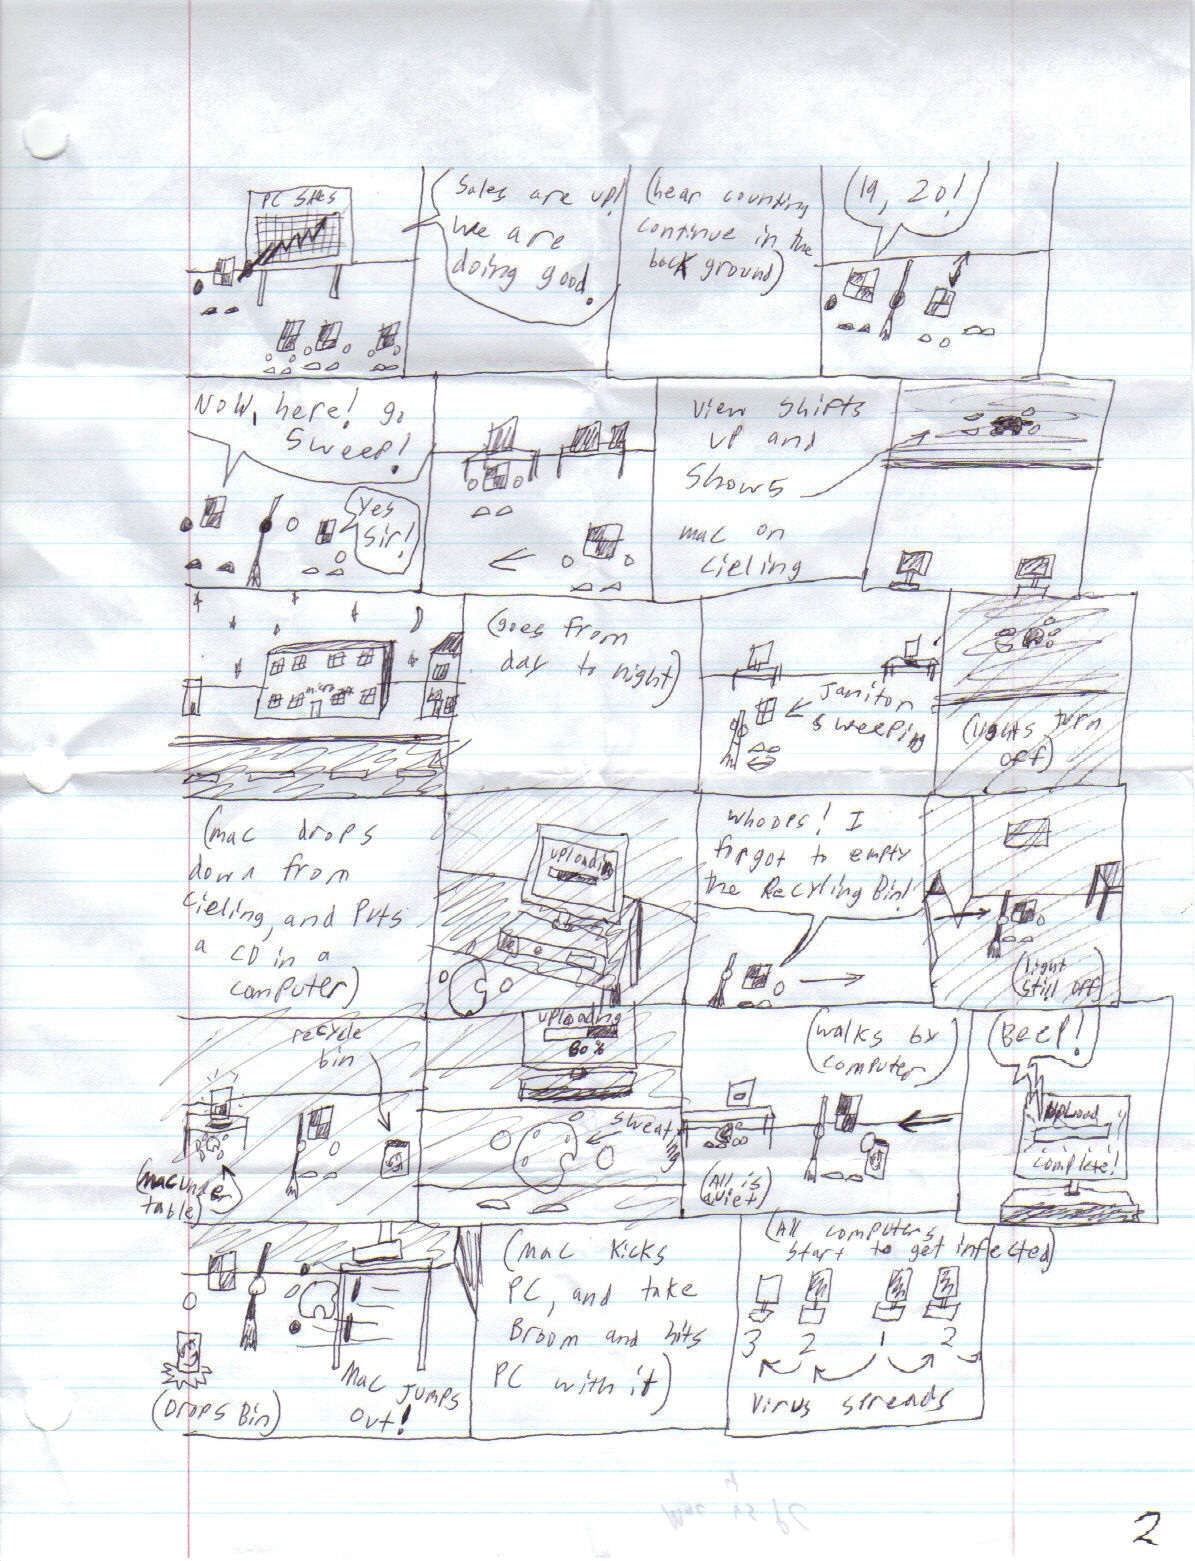 PC Sales
Sales are up!
We are
doing good.
(hear counting
continue in the
back ground)
19, 20!
Now, here! go
Sweep!
Yes
Sir!
View Shifts
up and
Shows
mac on
cieling
(goes from
day to night)
Janitor
Sweeping
(lights turn
off)
(mac drops
down from
cieling, and Puts
a CD in a
computer)
uploading
Whoops! I
forgot to empty
the Recyling Bin!
(light
still off)
recycle
bin
(mac under
table)
uploading
80%
Sweating
(walks by
computer)
(All is
quiet)
Beep!
Upload
complete!
(Drops Bin)
Mac Jumps
Out!
(Mac Kicks
PC, and take
Broom and hits
PC with it)
(All computers
Start to get infected)
3 2 1 2
Virus Spreads
2